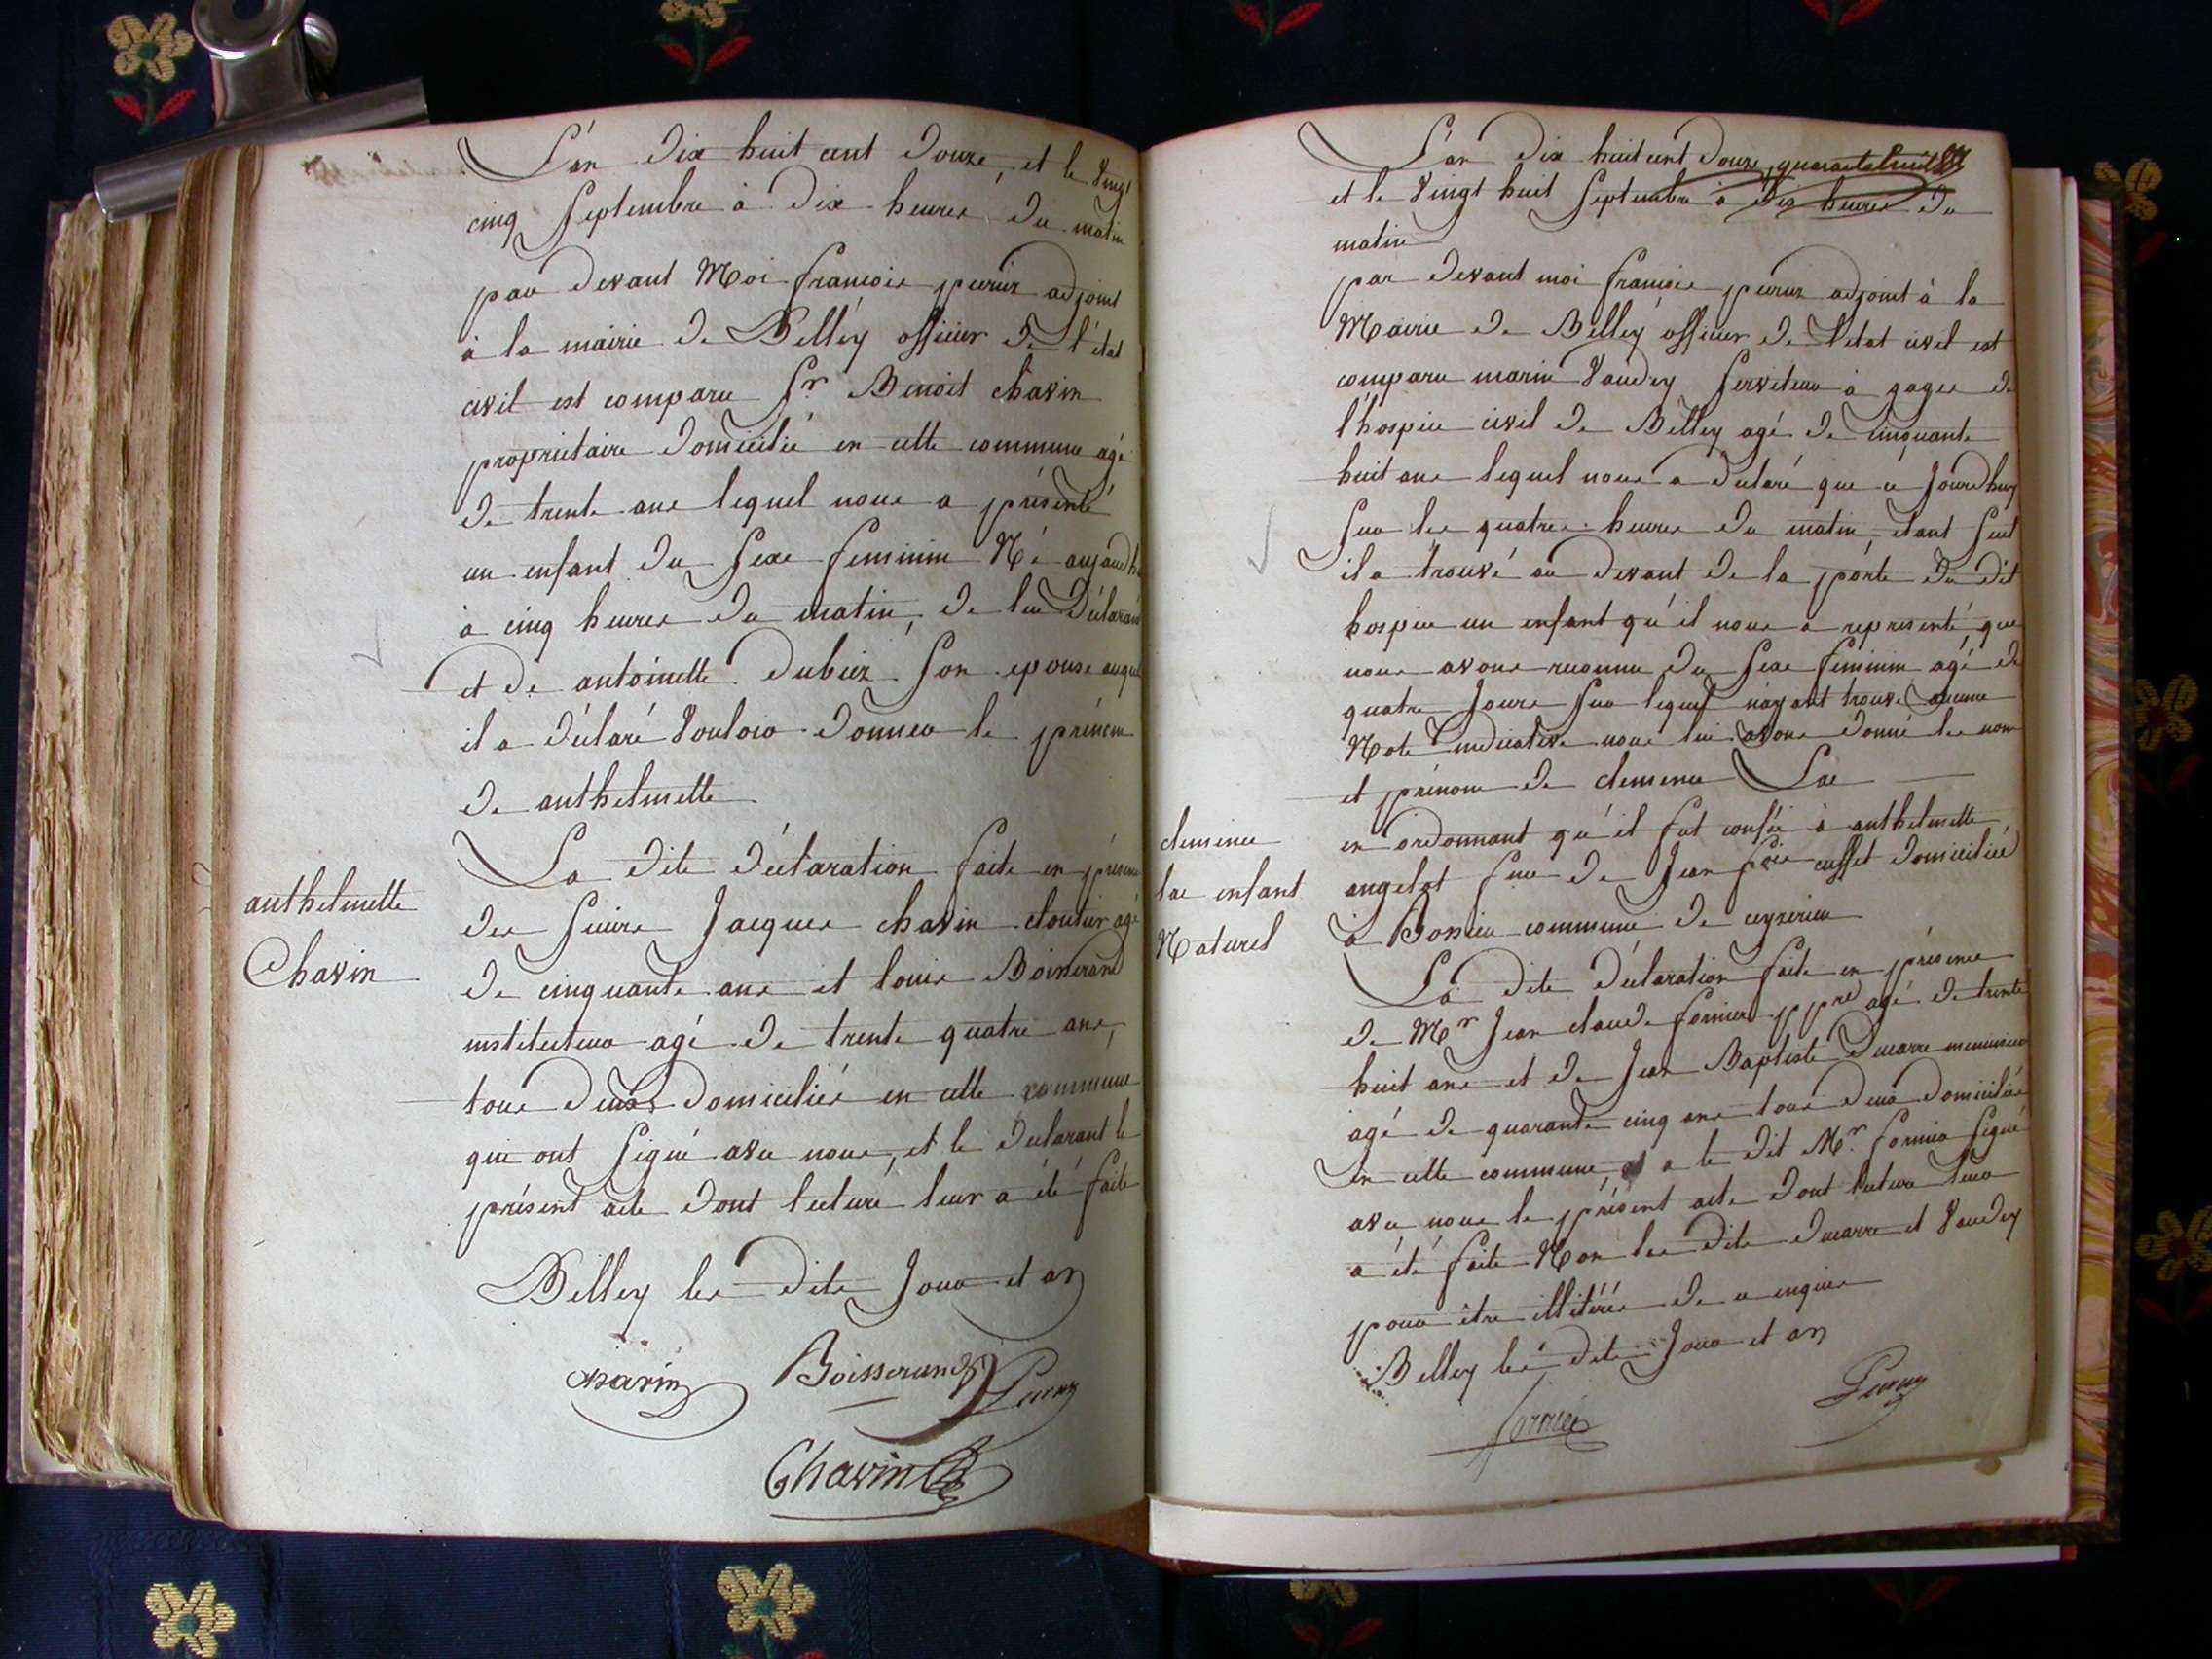 L'an dix huit cent douze, et le Vingt
cinq Septembre à dix heures du matin
par devant Moi françois perrier adjoint
à la mairie de Belley officier de l'état
civil est comparu Sr. Benoit Chavin
propriétaire domicilié en cette commune agé
de trente ans lequel nous a présenté
un enfant du sexe feminin Né aujourdh
à cinq heures du matin, de lui déclarant
et de antoinette Dubiez son epouse auquel
il a déclaré vouloir donner le prénom
de anthelmette
La dite déclaration faite en présence
des sieurs Jacques chavin cloutier agé
de cinquante ans et louis Boisserand
instituteur agé de trente quatre ans,
tous deux domiciliés en cette commune
qui ont signé avec nous, et le déclarant le
présent acte dont lecture leur a été faite
Belley les dits Jour et an
anthelmette
Chavin
chavin Boisserand
Chavin
L'an dix huit cent douze,
et le vingt huit Septembre à dix heures du
matin
par devant moi françois perrier adjoint à la
Mairie de Belley officier de l'etat civil est
comparu marin Vaudey serviteur à gages de
l'hospice civil de Belley agé de cinquante
huit ans lequel nous a déclaré que ce Jourdhuy
sur les quatres heures du matin, etant seul
il a trouvé au devant de la porte du dit
hospice un enfant qu'il nous a représenté que
nous avons reconnu du sexe feminin agé de
quatre Jours sur lequel n'ayant trouvé aucune
Note indicative nous lui avons donné les nom
et prénom de clemence Lac
en ordonnant qu'il fut confié à anthelmette
angelot feme de Jean fois cusset domicilié
à commune de ceyzerieu
La dite déclaration faite en présence
de Mr Jean claude fornier ppre agé de trente
huit ans et de Jean Baptiste Ducarre menuisier
agé de quarante cinq ans tous deux domiciliés
en cette commune, et a le dit Mr. fornier signé
avec nous le présent acte dont lecture leur
a été faite Non les dits Ducarre et Vaudey
pour être illitérés de ce enquis
Belley les dits Jour et an
clemence
lac enfant
Naturel
fornier